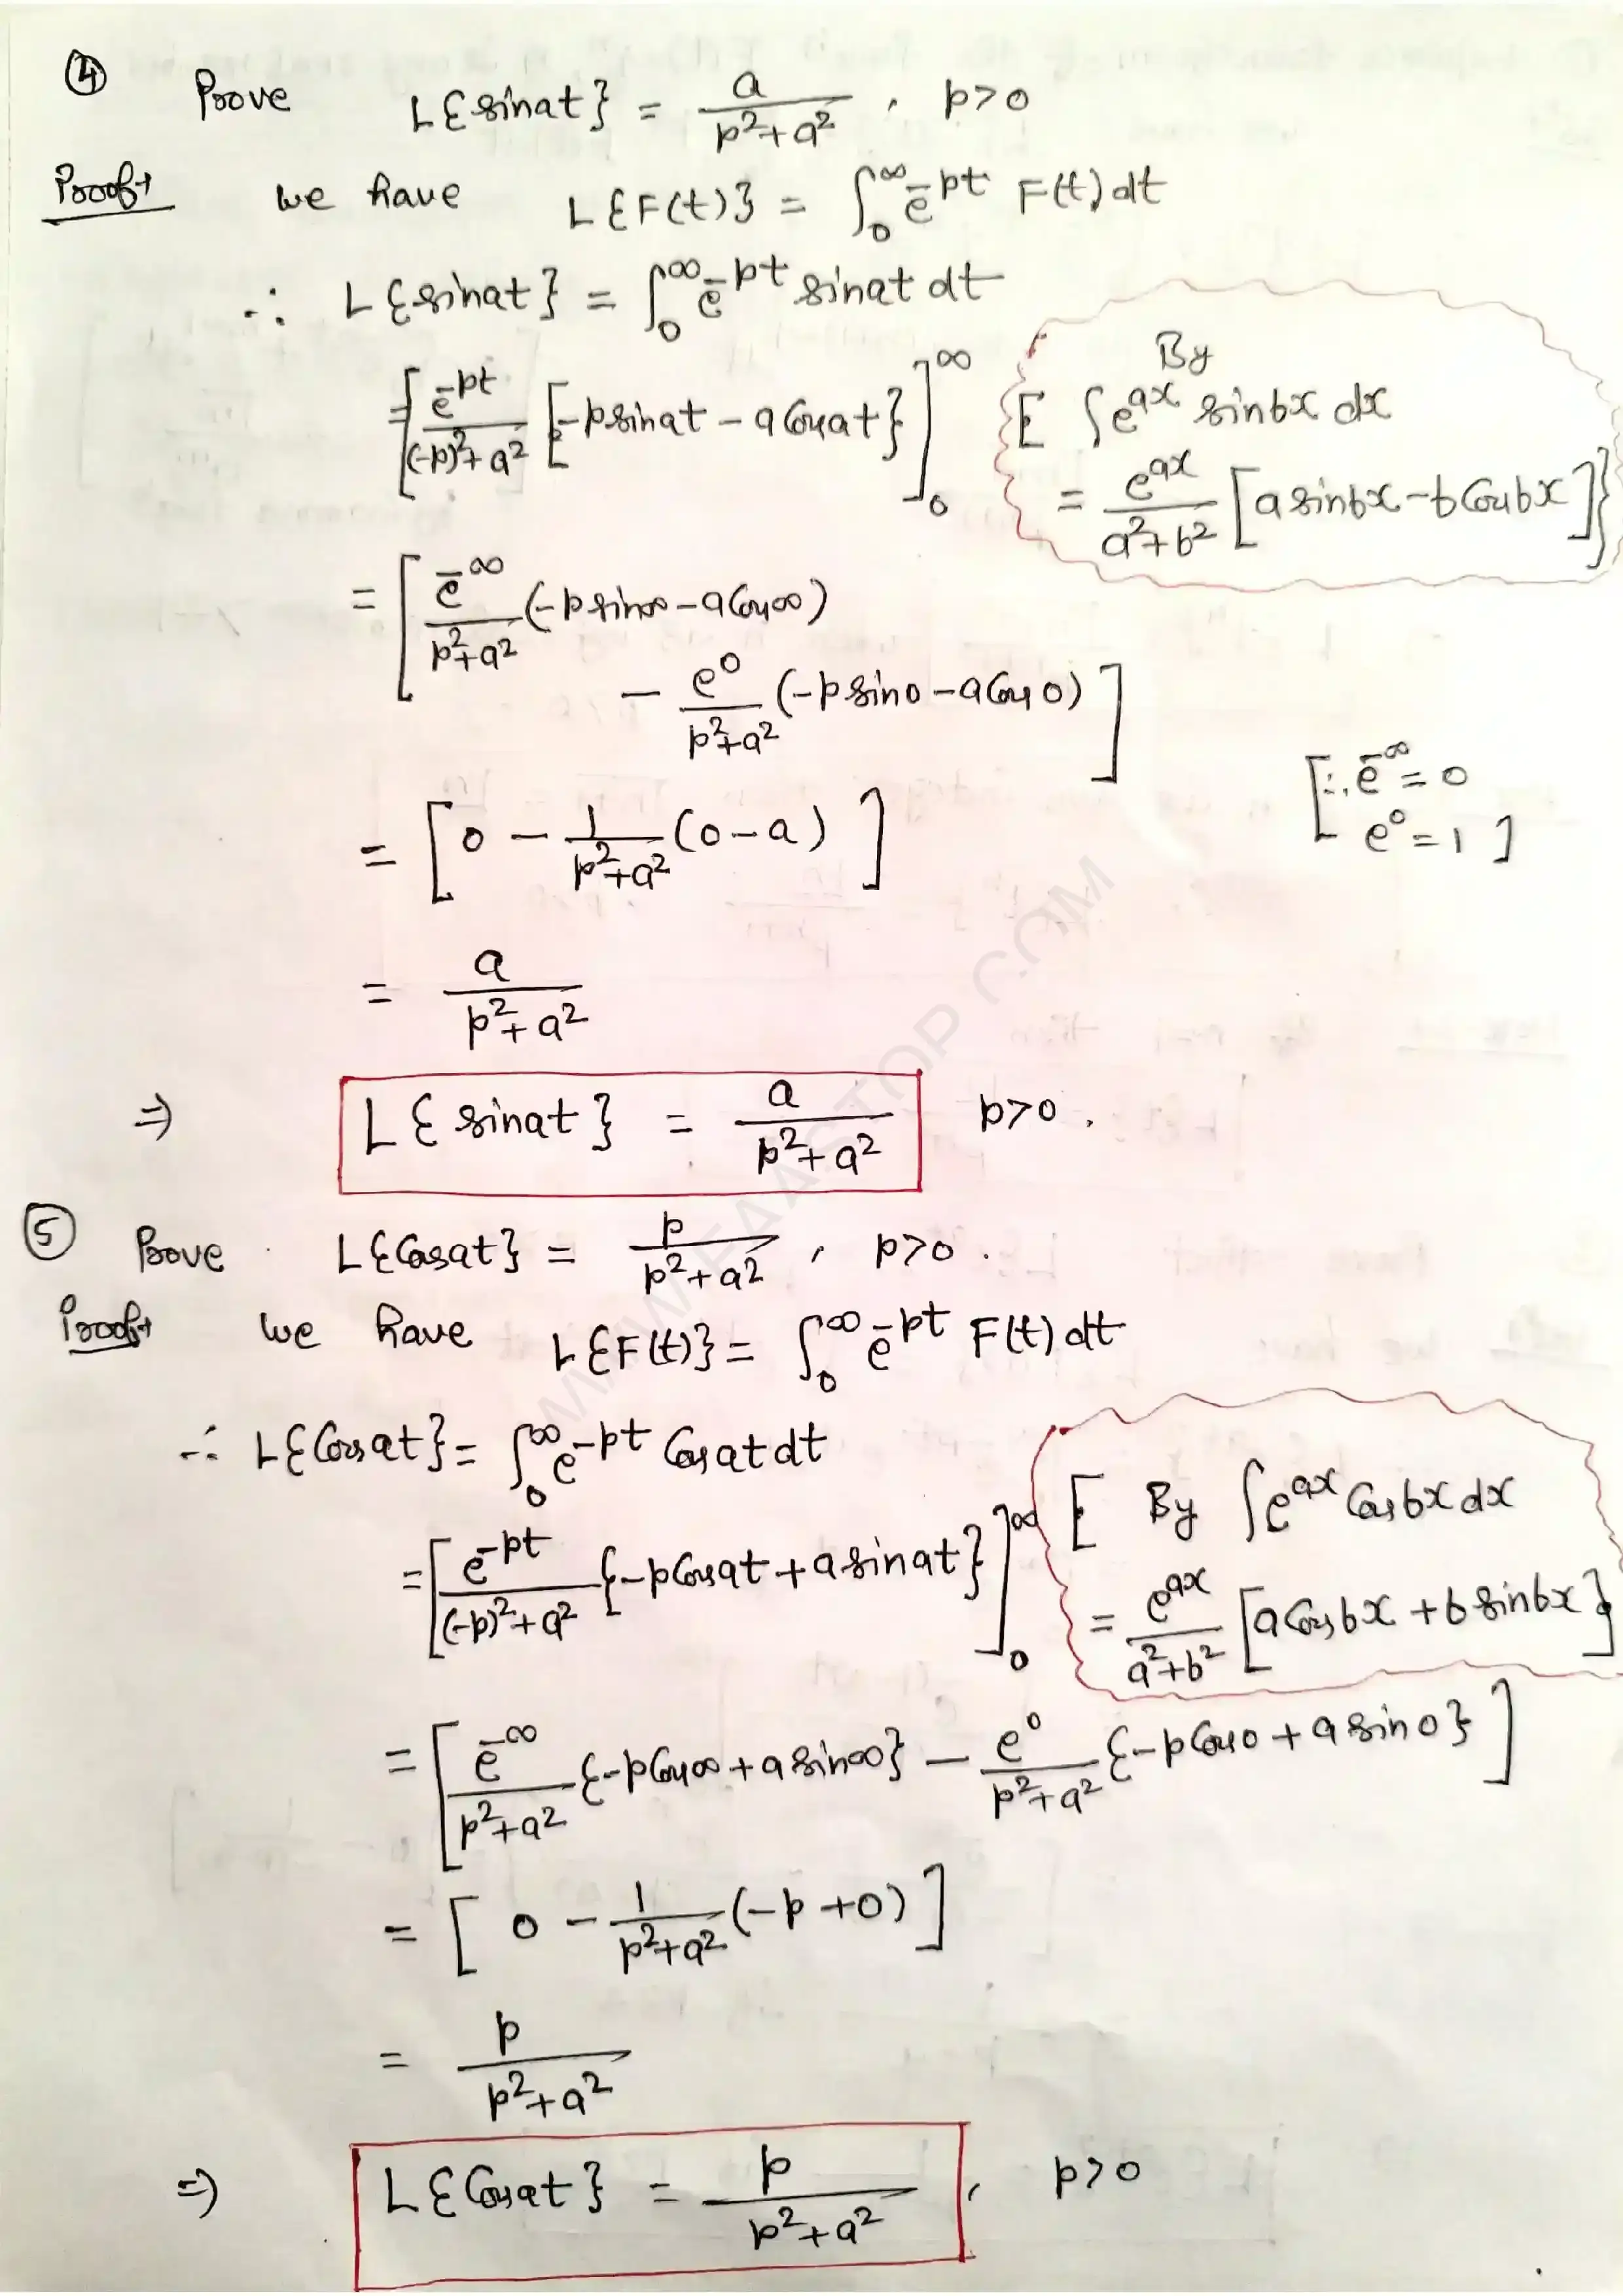 ④ Prove L{sinat} = a/(p²+a²) , p>0
Proof→ we have L{F(t)} = ∫₀^∞ e^-pt F(t)dt
∴ L{sinat} = ∫₀^∞ e^-pt sinat dt
= [ e^-pt/((-p)²+a²) [-psinat - aCosat} ]₀^∞
By
[ ∫e^ax sinbx dx
= e^ax/(a²+b²) [a sinbx - b Cosbx]}
= [ e^-∞/(p²+a²) (-psin∞ - aCos∞)
- e^0/(p²+a²) (-psin0 - aCos0) ]
[∵ e^-∞ = 0
e^0 = 1 ]
= [ 0 - 1/(p²+a²) (0-a) ]
= a/(p²+a²)
⇒ L{sinat} = a/(p²+a²) p>0 .
⑤ Prove L{Cosat} = p/(p²+a²) , p>0 .
Proof→ we have L{F(t)} = ∫₀^∞ e^-pt F(t)dt
∴ L{Cosat} = ∫₀^∞ e^-pt Cosat dt
= [ e^-pt/((-p)²+a²) {-pCosat + asinat} ]₀^∞
[ By ∫e^ax Cosbx dx
= e^ax/(a²+b²) [aCosbx + bsinbx]
= [ e^-∞/(p²+a²) {-pCos∞ + asin∞} - e^0/(p²+a²) {-pCos0 + asin0} ]
= [ 0 - 1/(p²+a²) (-p+0) ]
= p/(p²+a²)
⇒ L{Cosat} = p/(p²+a²) , p>0